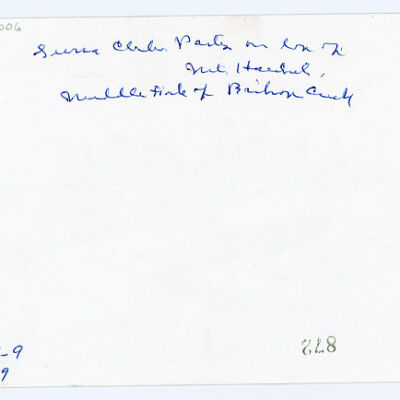 006
Sierra Club Party on
Mt. Haeckel,
Middle Fork of Bishop Creek
-9
9
872